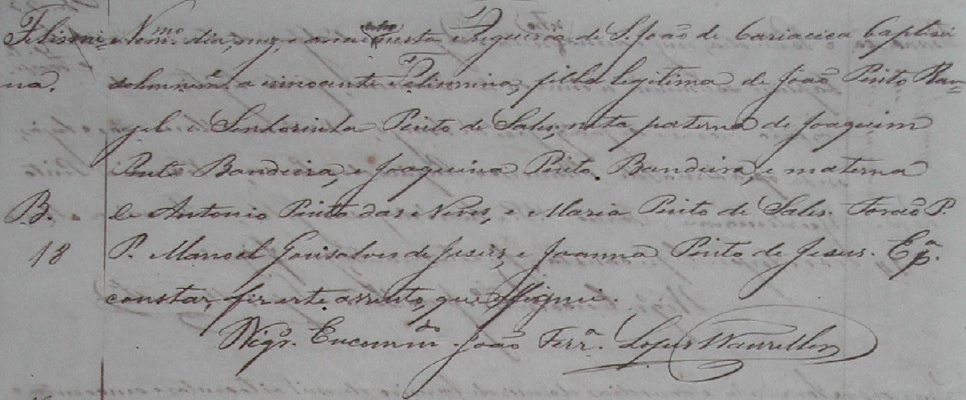 Felismi= No m.mo dia, mez, e anno nesta Freguezia de S. João de Cariacica baptisei
na. solemnem.e a innocente Felismina, filha legitima de João Pinto Ran=
gel e Senhorinha Pinto de Sales, neta paterna de Joaquim
Pinto Bandeira, e Joaquina Pinto Bandeira, e materna
B. de Antonio Pinto das Neves, e Maria Pinto de Sales. Forão P.
18 P. Manoel Gonsalves de Jesus, e Joanna Pinto de Jesus. E p.a
constar, fiz este assento, que assignei.
Vigr.o Encomm.do João Ferr.a Lopes Wanzeller